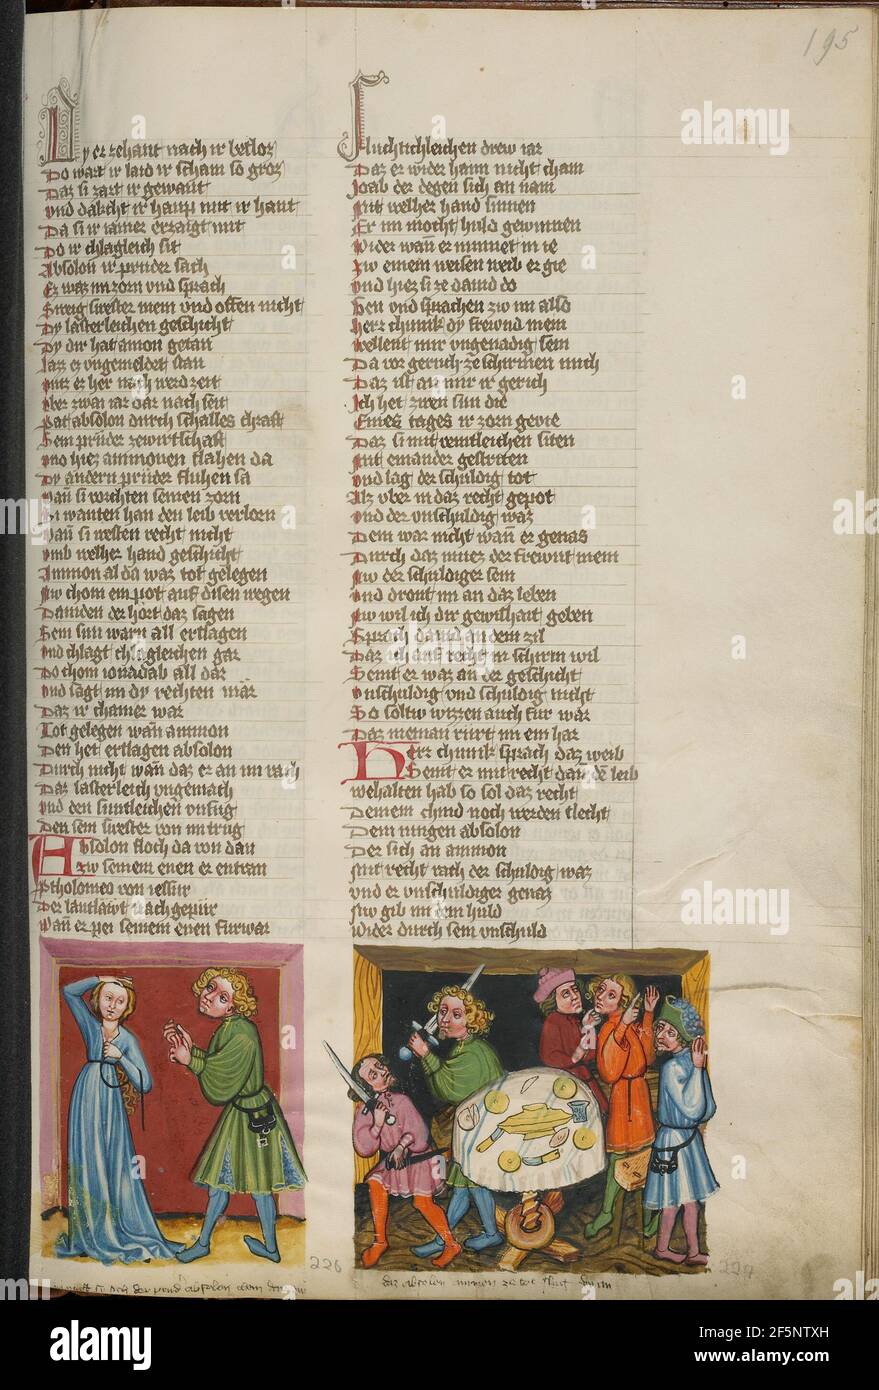 195
Dy er zehant nach ir verlos
Do wart ir laid ir scham so groz
Daz si zart ir gewant
und dakcht ir haup mit ir hant
Da si ir iamer erzaigt mit
Do ir chlagleich sit
Absolon ir prüder sach
Er waz in zorn und sprach
Sweig swester mein und offen nicht
Dy lasterleichen geschicht
Dy dir hat amon getan
Laz ez ungemeldet stan
untz er her nach werd zeit
Uber zwai iar dar nach seit
Pat absolon durch schalles chraft
Sein prüder ze wirtschaft
und hiez ammonen slahen da
Dy andern prüder fluhen sa
wan si vorchten seinen zorn
Si wanten han den leib verlorn
wan si westen recht nicht
umb welher hand geschicht
Ammon al da waz tot gelegen
Nw chom ein pot auf disen wegen
Dauiden der hort daz sagen
Sein sun warn all erslagen
und chlagt chlagleichen gar
Do chom ionadab all dar
und sagt im dy rechten mär
Daz ir chainer war
Tot gelegen wan ammon
Den het erslagen absolon
Durch nicht wan daz er an im rach
Daz lasterleich ungemach
und den suntleichen unfug
Den sein swester von im trug
Absolon floch da von dan
zw seinem enen er entran
Ptholomeo von iessur
Der lantlawt nach gepür
wan er pei seinem enen fürwar
Fluchtichleichen drew iar
Daz er wider haim nicht cham
Joab der degen sich an nam
Mit welher hand sinnen
Er im mocht huld gewinnen
wider wan er minnet in ie
zw einem weisen weib er gie
und hiez si ze dauid do
Gen und sprachen zw im also
herr chunik dy frewnd mein
wellent mir ungenadig sein
Da vor geruch ze schirmen mich
Daz ist an mir ir gerich
Ich het zwen sun die
Eines tages ir zorn gevie
Daz si mit veintleichen siten
Mit einander gestriten
und lag der schuldig tot
Alz uber in daz recht gepot
und der unschuldig waz
Dem war nicht wan er genas
Durch daz muez der frewnt mein
Nw der schuldiger sein
und dront im an daz leben
Nw wil ich dir gewishait geben
Sprach dauid an dem zil
Daz ich auf recht in schirm wil
Seint er waz an der geschicht
unschuldig und schuldig nicht
So soltw wizzen auch fur war
Daz nieman rürt im ein har
Herr chunik sprach daz weib
Seint er mit recht dann den leib
wehalten hab so sol daz recht
Deinem chind noch werden slecht
Dem iungen absolon
Der sich an ammon
Mit recht rach der schuldig waz
und er unschuldiger genaz
Nw gib im dein huld
wider durch sein unschuld
226
227
daz absolon ammon ze tot slug
alamy
Image ID: 2F5NTXH
www.alamy.com